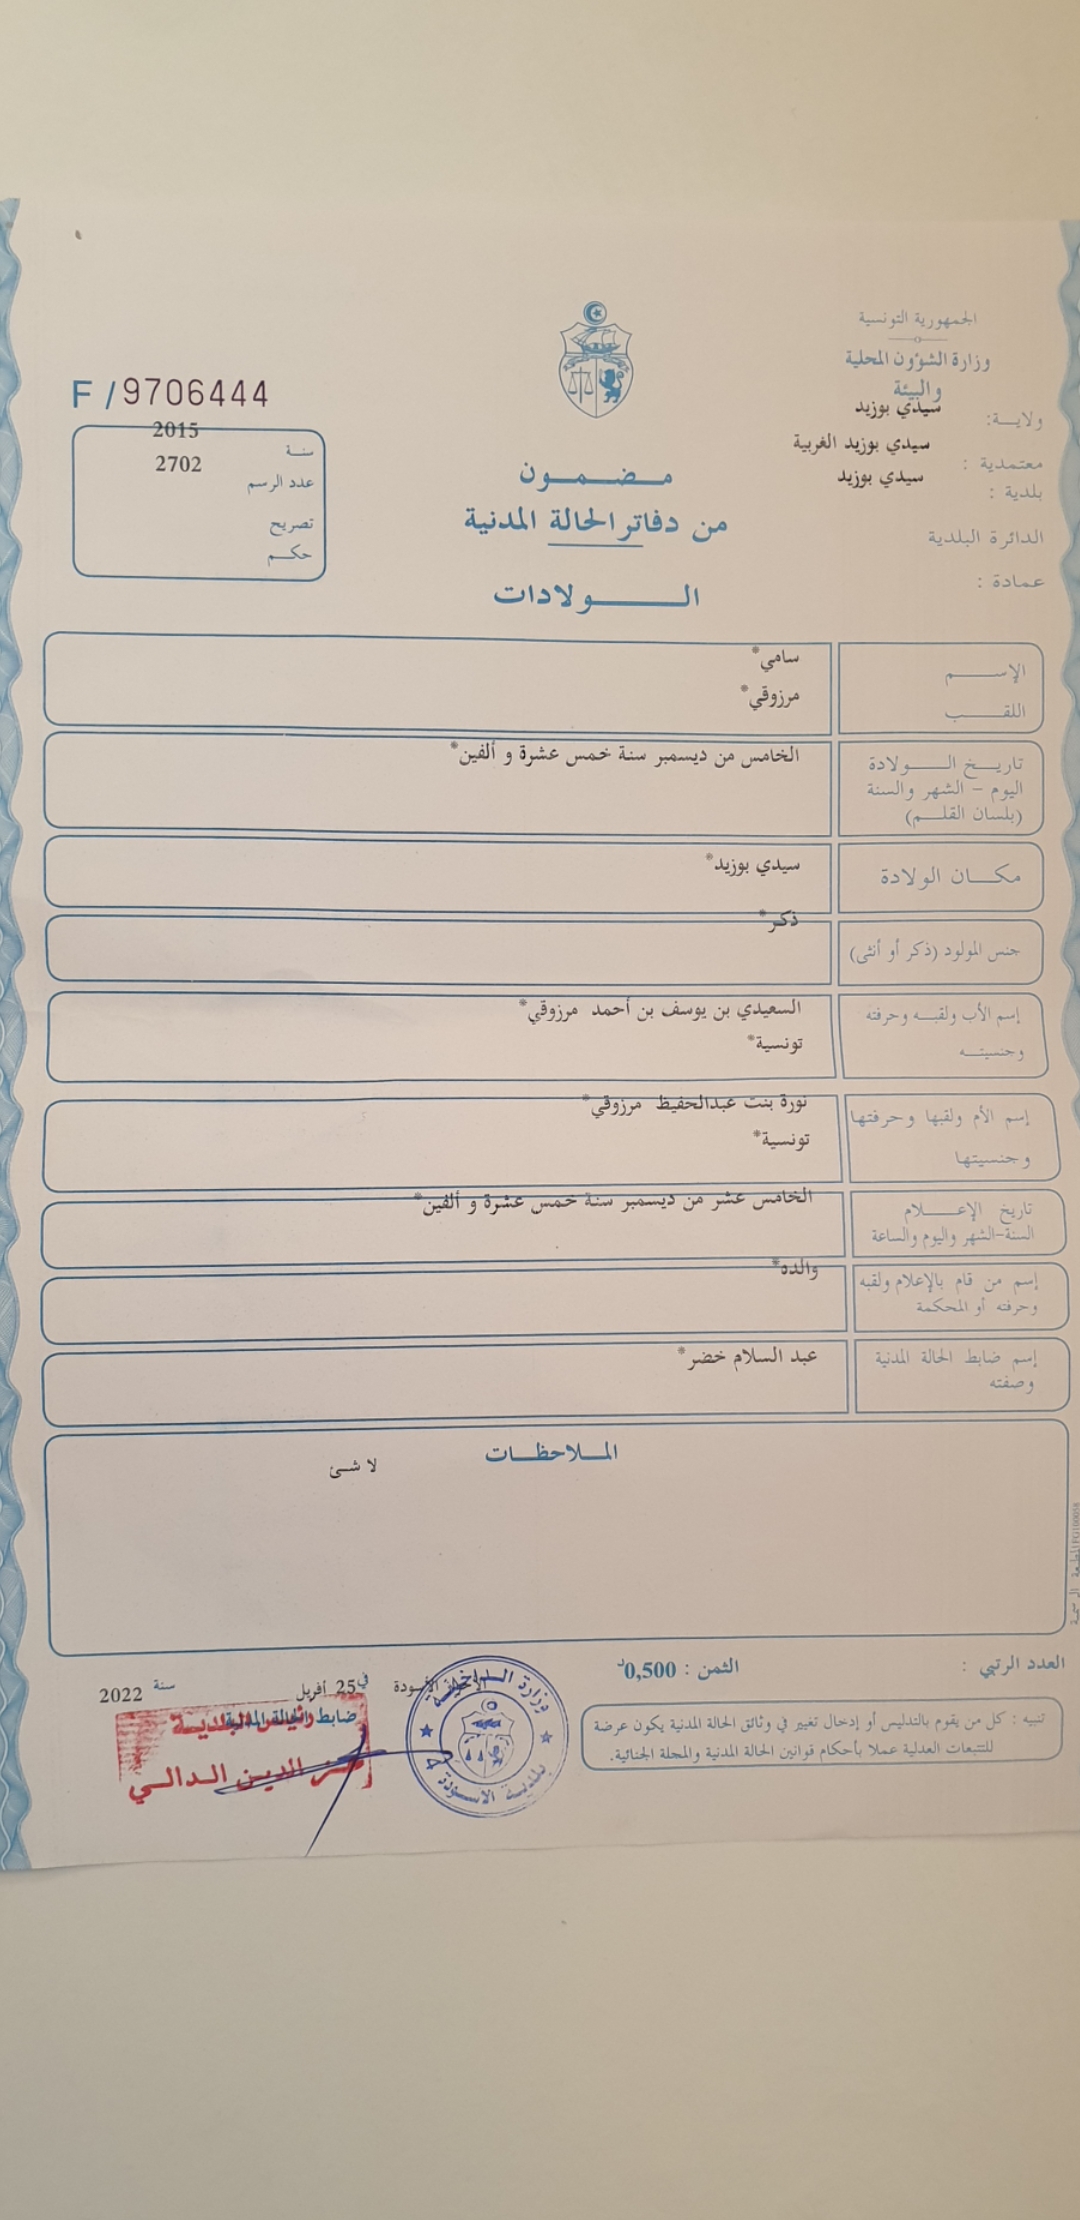 الجمهورية التونسية
وزارة الشؤون المحلية
والبيئة
ولايــة: سيدي بوزيد
معتمدية : سيدي بوزيد الغربية
بلدية : سيدي بوزيد
الدائرة البلدية
عمادة :
F / 9706444
سنة 2015
عدد الرسم 2702
تصريح
حكـم
مـضـمـون
من دفاتر الحالة المدنية
الـــولادات
الإســـم سامي*
اللقـــب مرزوقي*
تاريـــخ الـــولادة
اليوم – الشهر والسنة
(بلسان القلـــم)
الخامس من ديسمبر سنة خمس عشرة و ألفين*
مكـــان الولادة سيدي بوزيد*
جنس المولود (ذكر أو أنثى) ذكر*
إسم الأب ولقبـه وحرفته
وجنسيتـــه
السعيدي بن يوسف بن أحمد مرزوقي*
تونسية*
إسم الأم ولقبها وحرفتها
وجنسيتها
نورة بنت عبدالحفيظ مرزوقي*
تونسية*
تاريخ الإعـــلام
السنة-الشهر واليوم والساعة
الخامس عشر من ديسمبر سنة خمس عشرة و ألفين*
إسم من قام بالإعلام ولقبه
وحرفته أو المحكمة
والده*
إسم ضابط الحالة المدنية
وصفته
عبد السلام خضر*
المـــلاحظـــات
لا شئ
المطبعة الرسمية
العدد الرتبي :
الثمن : 0,500د
تنبيه : كل من يقوم بالتدليس أو إدخال تغيير في وثائق الحالة المدنية يكون عرضة
للتتبعات العدلية عملا بأحكام قوانين الحالة المدنية والمجلة الجنائية.
الأسودة في 25 أفريل سنة 2022
ضابط الحالة المدنية
رئيس البلديـــة
عـز الدين الـدالـــي
وزارة الـداخـلـيـة
بلدية الاسـودة
4